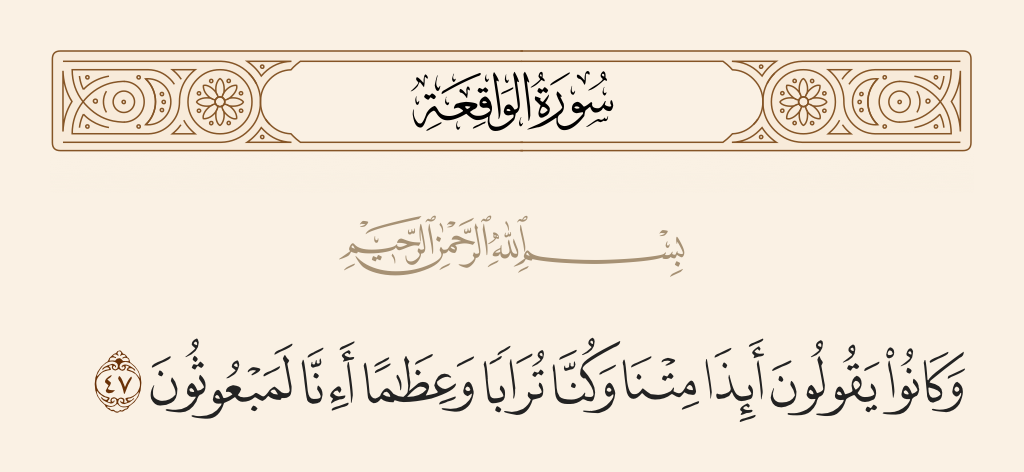 سُورَةُ الوَاقِعَةِ
بِسْمِ ٱللَّهِ ٱلرَّحْمَٰنِ ٱلرَّحِيمِ
وَكَانُوا۟ يَقُولُونَ أَئِذَا مِتْنَا وَكُنَّا تُرَابًا وَعِظَـٰمًا أَءِنَّا لَمَبْعُوثُونَ ٤٧